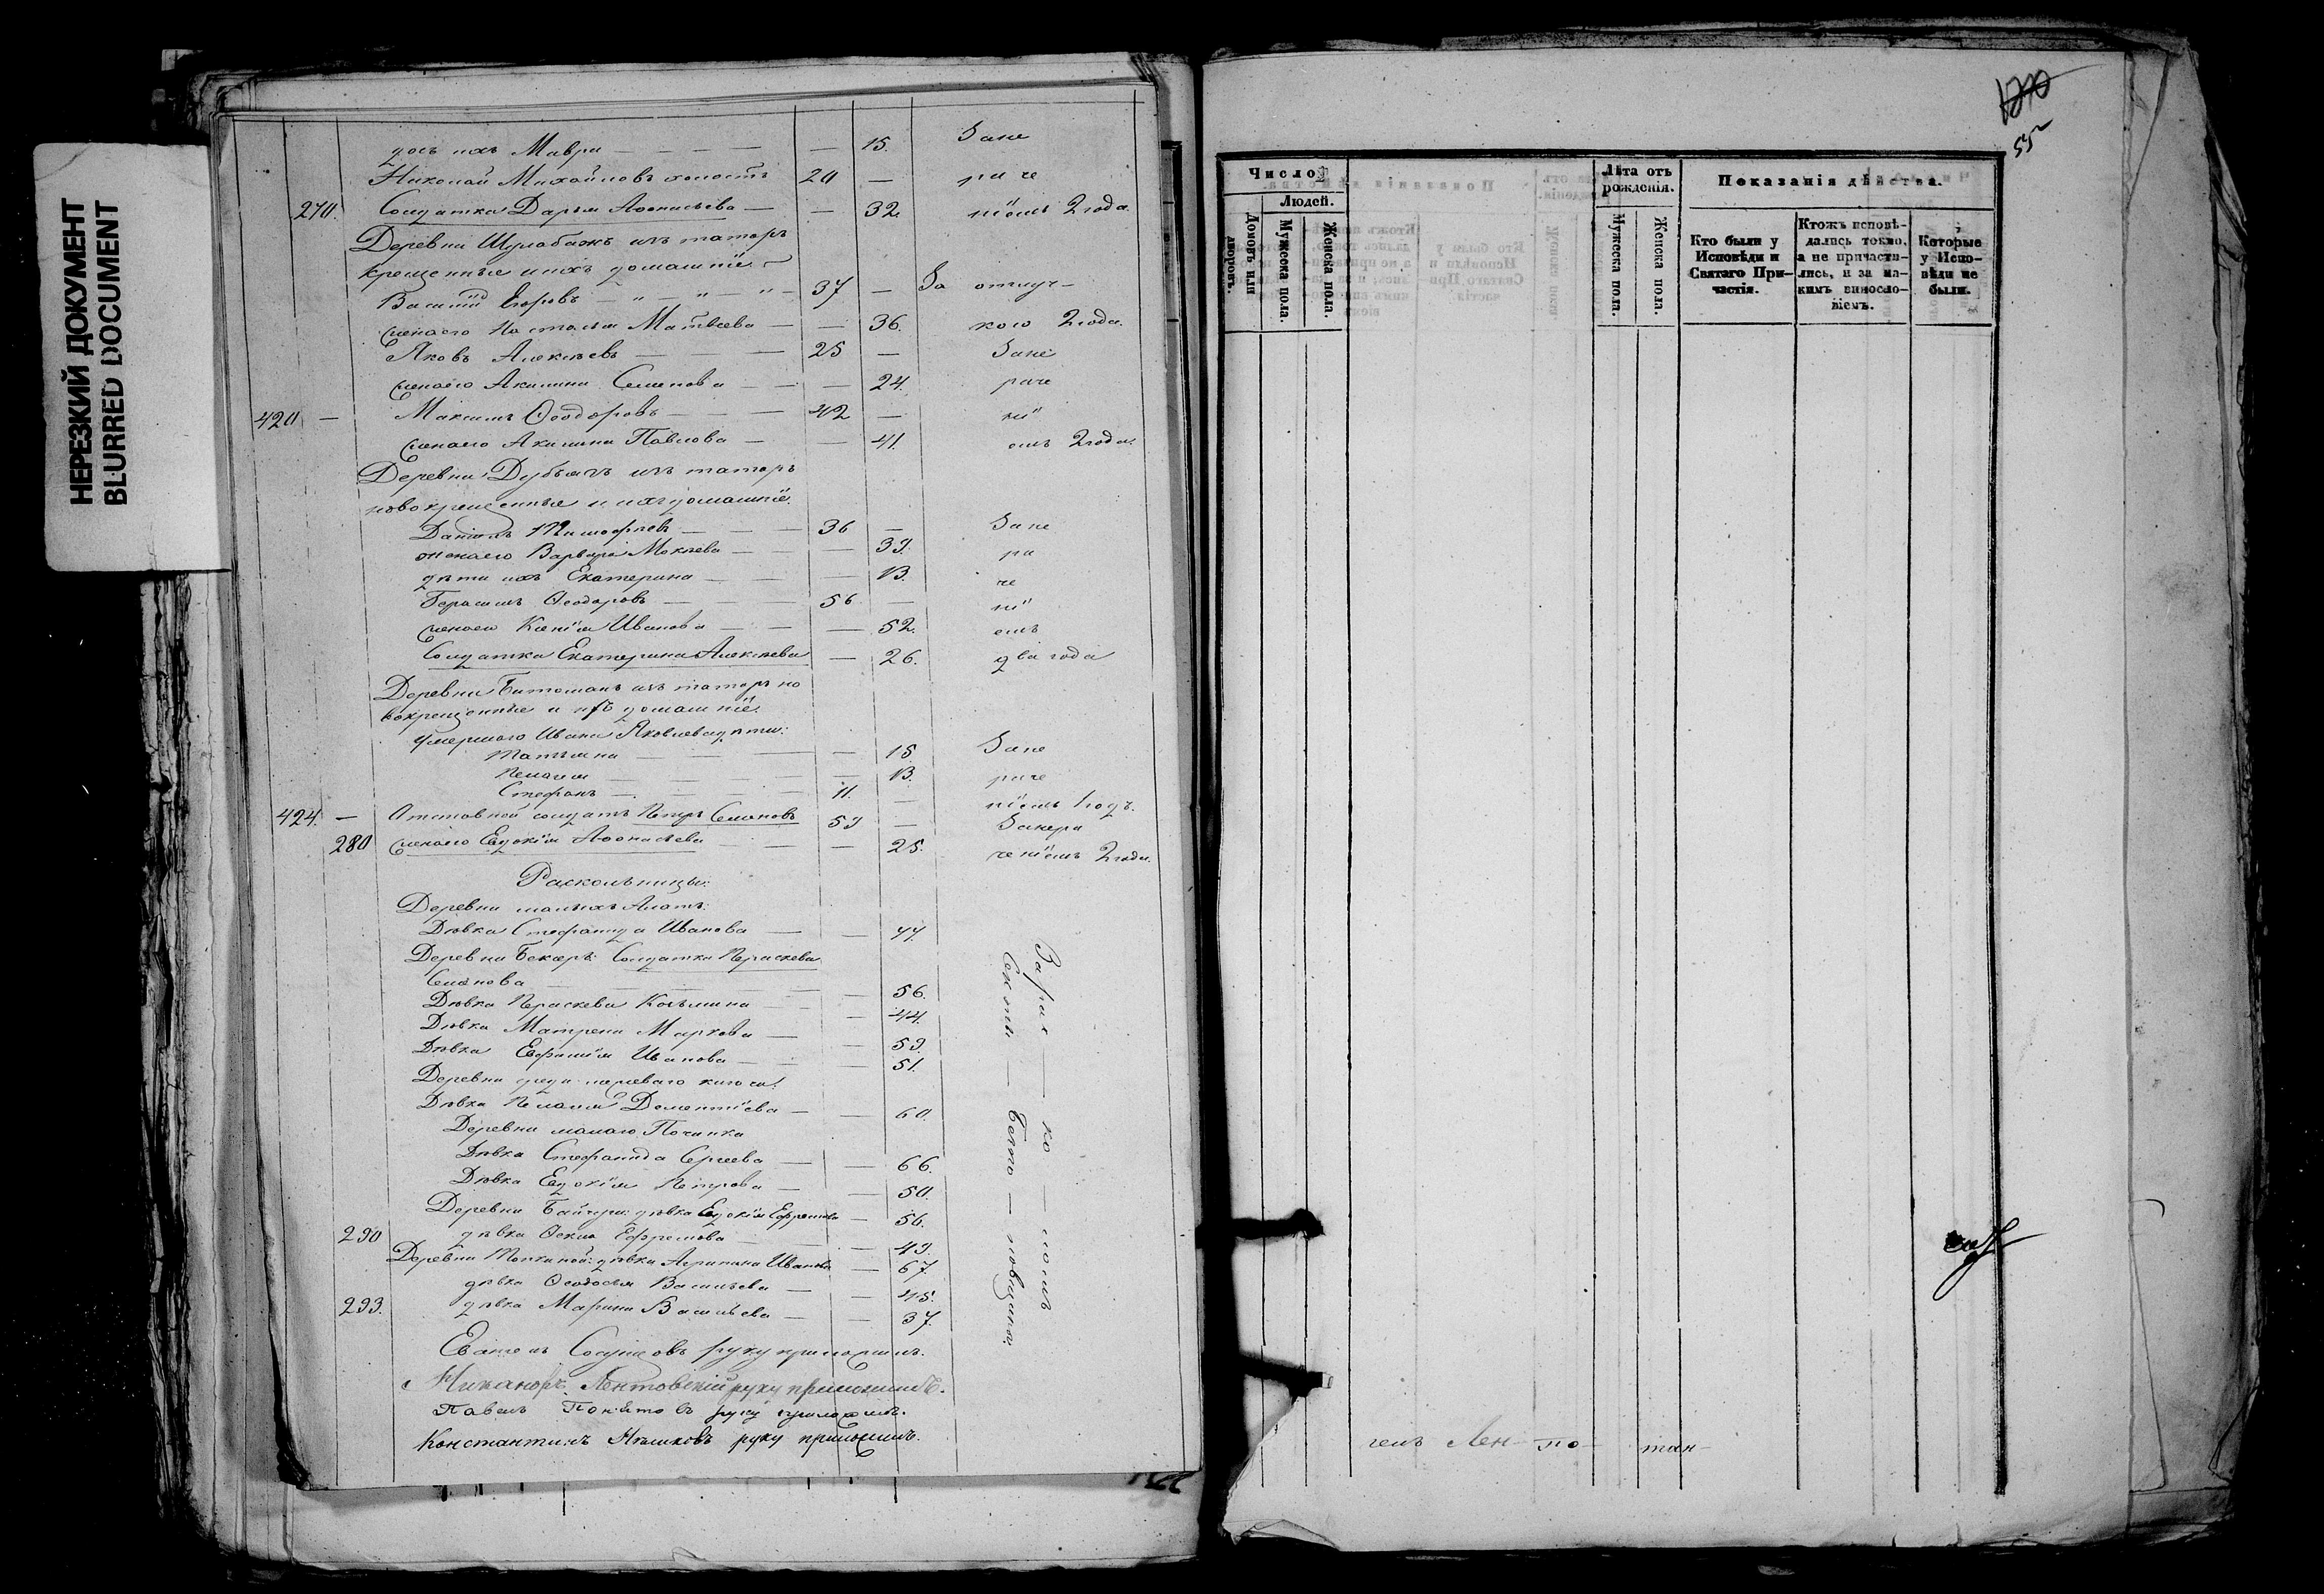 НЕРЕЗКИЙ ДОКУМЕНТ
BLURRED DOCUMENT
дочь ихъ Мавра — 15. Зане
Николай Михайловъ холостъ 20 — раче
270. Солдатка Дарья Аѳонасьева — 32. ніемъ 2 года.
Деревни изъ татаръ
крещенные и ихъ домашніе
Василій Егоровъ — 37 — За отлуч-
жена его Наталья Матвѣева — 36. кою 2 года.
Яковъ Алексѣевъ — 25 — Зане
жена его Акилина Семенова — 24. раче
420 — Максимъ Ѳеодоровъ — 42 — ні
жена его Акилина Павлова — 41. емъ 2 года.
Деревни Дубъязъ изъ татаръ
новокрещенные и ихъ домашніе.
Данилъ Тимофѣевъ — 36 — Зане
жена его Варвара Мокѣева — 39. ра
дѣти ихъ Екатерина — 13. че
Герасимъ Ѳеодоровъ — 56 — ні
жена его Ксенія Иванова — 52. емъ
Солдатка Екатерина Алексѣева — 26. два года
Деревни изъ татаръ но
вокрещенные и ихъ домашніе.
Умершаго Ивана Яковлева дѣти:
Татьяна — 15 Зане
Пелагея — 13. раче
Стефанъ — 11. — ніемъ 1 годъ.
424. — Отставной солдатъ Петръ Семеновъ 59 — Занера
280 жена его Евдокія Аѳонасьева — 25. ченіемъ 2 года.
Раскольницы:
Деревни малыхъ Алатъ:
Дѣвка Стефанида Иванова — 44.
Деревни солдатка Параскева
Семенова — 56.
Дѣвка Параскева Козьмина — 44.
Дѣвка Матрена Маркова — 59.
Дѣвка Евфимія Иванова — 51.
Деревни
Дѣвка Пелагея Дементіева — 60.
Деревни малаго Починка
Дѣвка Стефанида Сергеева — 66.
Дѣвка Евдокія Петрова — 50.
Деревни дѣвка Евдокія Ефремова — 56.
290 дѣвка Ѳекла Ефремова — 49.
Деревни дѣвка Агрипина Иванова — 67.
дѣвка Ѳеодосья Васильева — 45.
293. дѣвка Марина Васильева — 37.
За рас — ко — ломъ
Секты — Безпо — повщина.
руку приложилъ.
Никаноръ Лентовскій руку приложилъ.
Павелъ руку приложилъ.
Константинъ руку приложилъ.
1270
55
Число
Людей.
Домовъ или дворовъ.
Мужеска пола.
Женска пола.
Лѣта отъ рожденія.
Мужеска пола.
Женска пола.
Показанія дѣйства.
Кто были у
Исповѣди и
Святаго При-
частія.
Ктожъ исповѣ-
дались токмо,
а не причасти-
лись, и за ка-
кимъ винослo-
віемъ.
Которые
у Испо-
вѣди не
были.
Лен — то —